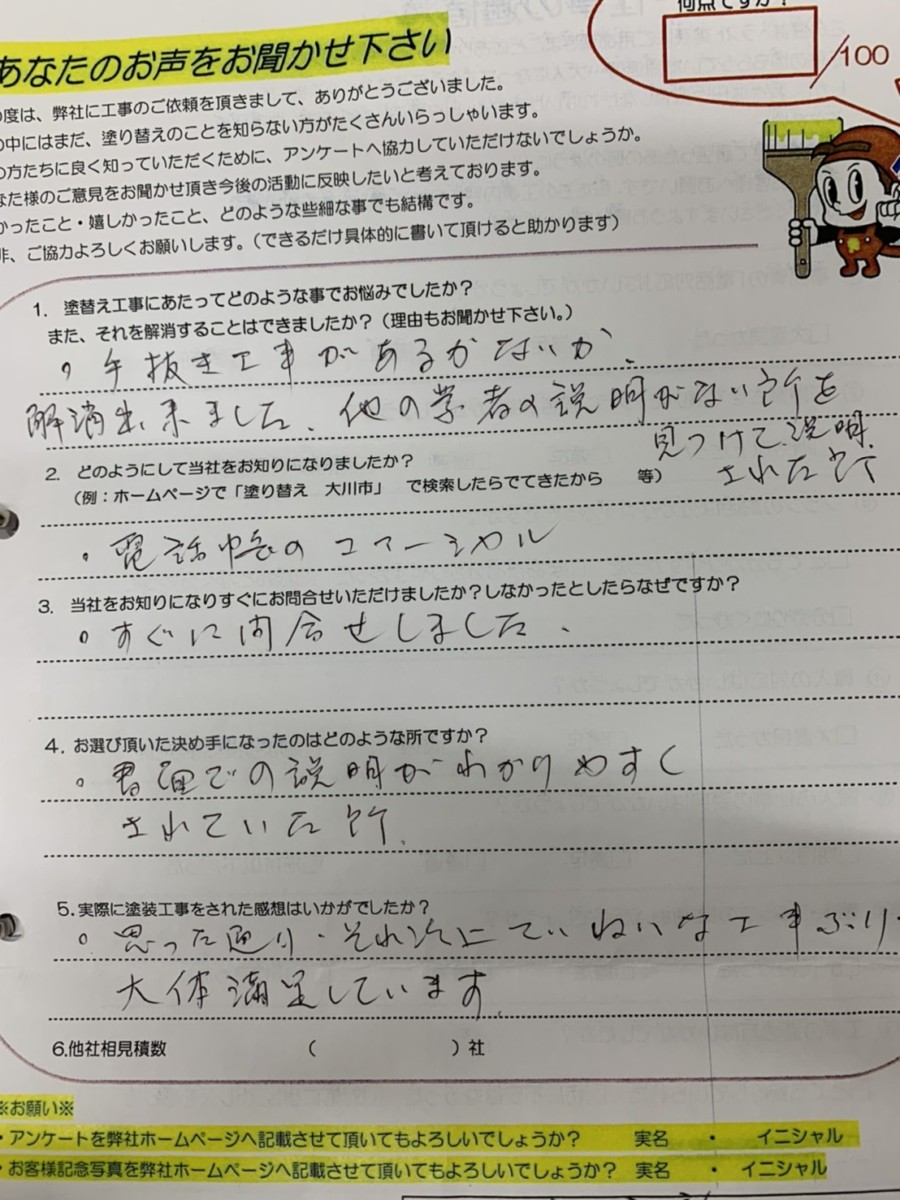 何点ですか?
/100
あなたのお声をお聞かせ下さい
の度は、弊社に工事のご依頼を頂きまして、ありがとうございました。
の中にはまだ、塗り替えのことを知らない方がたくさんいらっしゃいます。
の方たちに良く知っていただくために、アンケートへ協力していただけないでしょうか。
なた様のご意見をお聞かせ頂き今後の活動に反映したいと考えております。
かったこと・嬉しかったこと、どのような些細な事でも結構です。
非、ご協力よろしくお願いします。(できるだけ具体的に書いて頂けると助かります)
1. 塗替え工事にあたってどのような事でお悩みでしたか?
また、それを解消することはできましたか?(理由もお聞かせ下さい。)
。手抜き工事があるかないか、
解消出来ました、他の業者の説明がない所を
見つけて、説明
された所
2. どのようにして当社をお知りになりましたか?
(例:ホームページで「塗り替え 大川市」 で検索したらでてきたから 等)
・電話帳のコマーシャル
3. 当社をお知りになりすぐにお問合せいただけましたか?しなかったとしたらなぜですか?
。すぐに問合せしました、
4. お選び頂いた決め手になったのはどのような所ですか?
。書面での説明がわかりやすく
されていた所、
5.実際に塗装工事をされた感想はいかがでしたか?
。思った通り・それ以上にていねいな工事ぶり・
大体満足しています。
6.他社相見積数 ( )社
※お願い※
・アンケートを弊社ホームページへ記載させて頂いてもよろしいでしょうか? 実名 ・ イニシャル
・お客様記念写真を弊社ホームページへ記載させて頂いてもよろしいでしょうか? 実名 ・ イニシャル